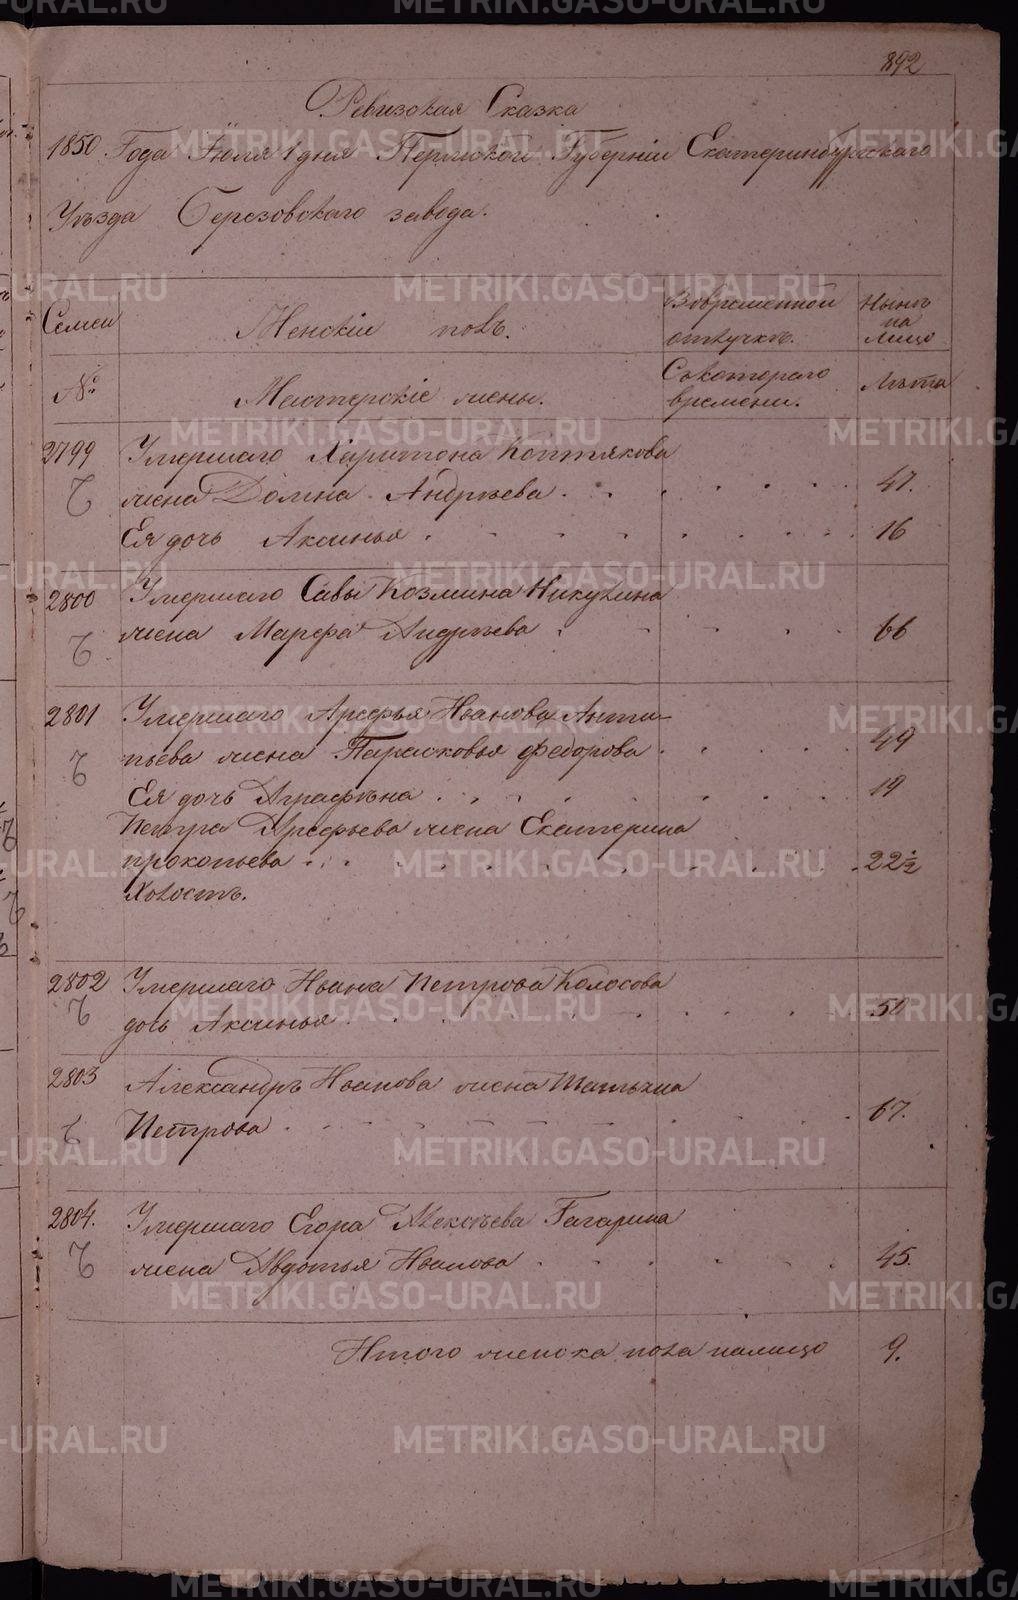 892
Ревизская Сказка
1850 Года Іюля 1 дня Пермской Губерніи Екатеринбургскаго
Уѣзда Березовского завода.
Семеи Женскій полъ. Вовременной отлучкѣ. Нынѣ на лицо
№ Мастерскіе жены. Скотораго времени. Лѣта
2799 Умершаго Харитона Коптякова
жена Домна Андрѣева 47.
Ея дочь Аксинья 16
2800 Умершаго Савы Козмина Никулина
жена Марфа Андрѣева 66
2801 Умершаго Арефья Иванова Анти-
пьева жена Парасковья Федорова 49
Ея дочь Аграфѣна 19
Петра Арефьева жена Екатерина
прокопьева 22½
Холостъ.
2802 Умершаго Ивана Петрова Колосова
дочь Аксинья 50
2803 Александръ Иванова жена
Петрова 67.
2804. Умершаго Егора Алексѣева Гагарина
жена Авдотья Иванова 45.
Итого женска пола налицо 9.
METRIKI.GASO-URAL.RU